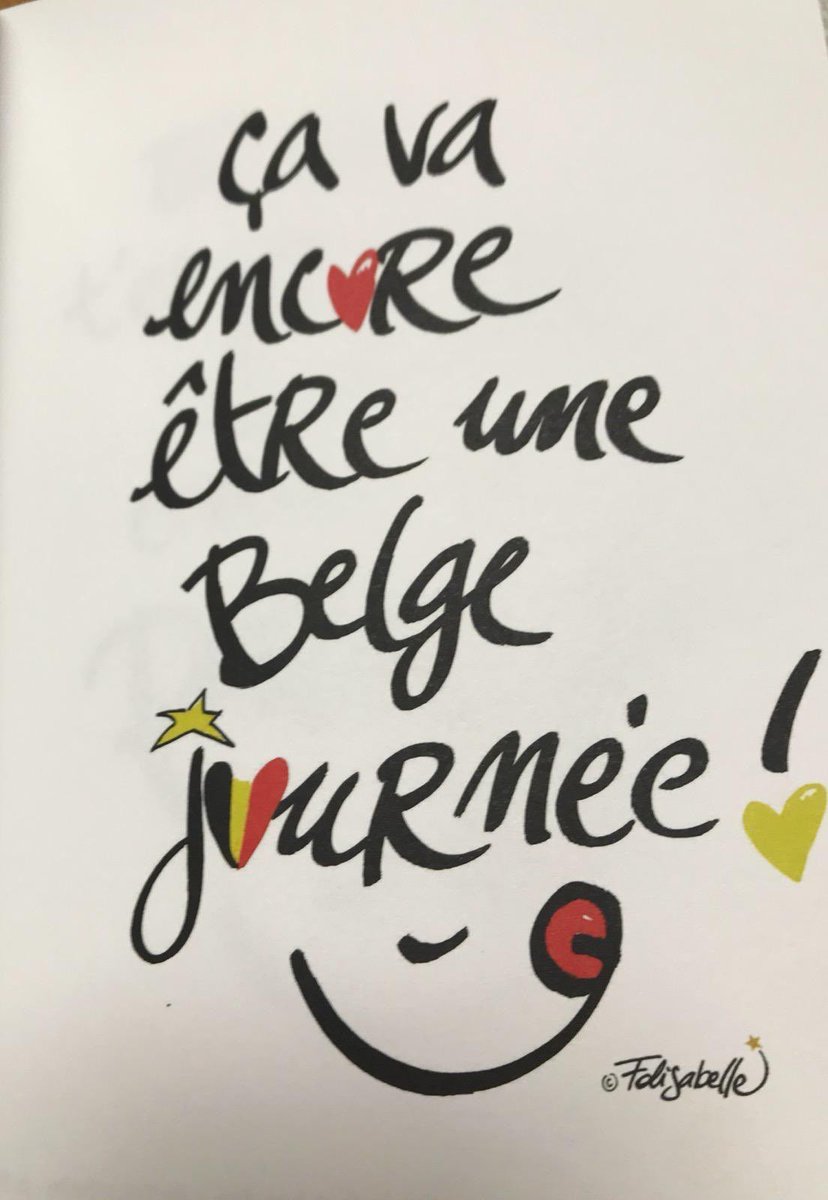 ça va
encore
être une
Belge
journée!
© Folisabelle